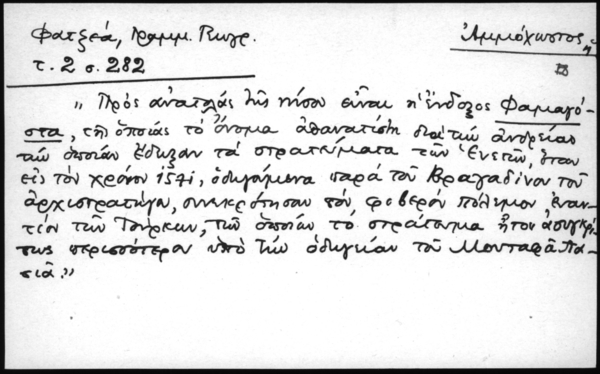 Φατζεά, Γραμμ. Γεωγρ.
Ἀμμόχωστος, ἡ
τ. 2 σ. 282
„ Πρὸς ἀνατολὰς τῆς νήσου εἶναι ἡ ἔνδοξος Φαμαγό-
στα, τῆς ὁποίας τὸ ὄνομα ἀθανατίσθη διὰ τὴν ἀνδρείαν
τὴν ὁποίαν ἔδειξαν τὰ στρατεύματα τῶν Ἑνετῶν, ὅταν
εἰς τὸν χρόνον 1571, ὁδηγούμενα παρὰ τοῦ Βραγαδίνου τοῦ
ἀρχιστρατήγου, συνεκρότησαν τὸν φοβερὸν πόλεμον ἐναν-
τίον τῶν Τούρκων, τῶν ὁποίων τὸ στράτευμα ἦτον ἀσυγκρί-
τως περισσότερον ὑπὸ τὴν ὁδηγίαν τοῦ Μουσταφᾶ Πα-
σιᾶ."